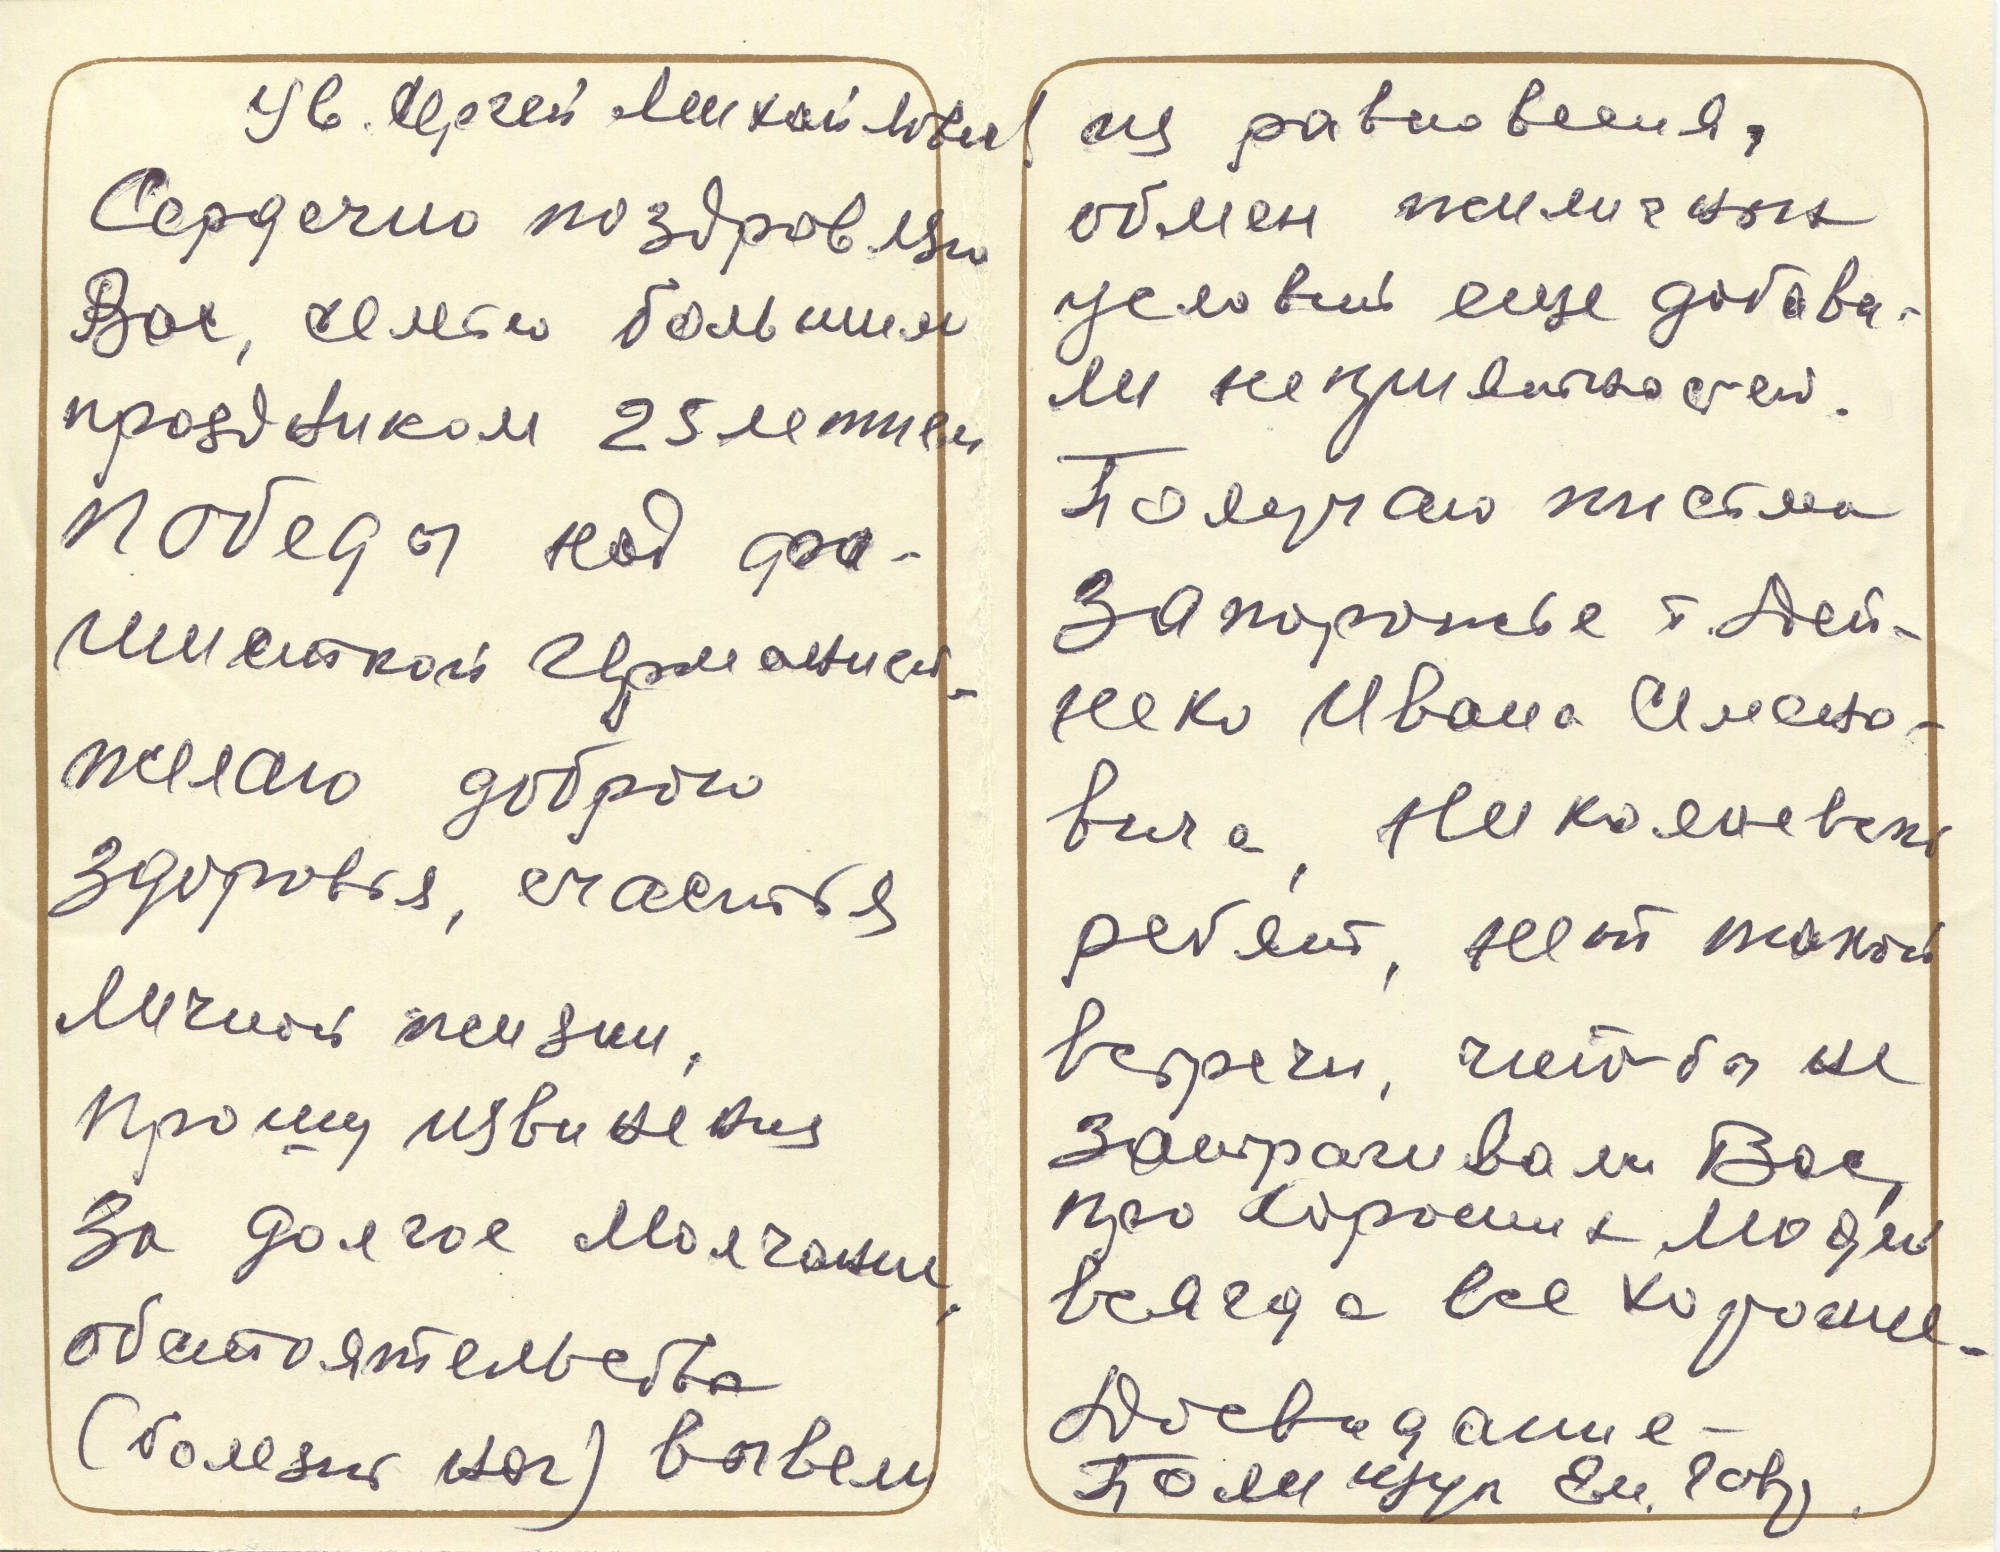 Ув. Сергей Михайлович!
Сердечно поздровляю
Вас, семью большим
праздником 25 летием
Победы над фа-
шисткой Германией-
желаю доброго
здоровья, счастья
личной жизни,
Прошу извинения
За долгое молчание,
обстоятельства
(болезнь ног) вывели
из равновесия,
обмен жиличных
условий еще добави-
ли неприятностей.
Получаю письма
Запорожье т. Дей-
неко Ивана Семено-
вича, Николаевских
ребят, нет такой
встречи, что-бы не
Затрагивали Вас,
про хороших людей
всягда все хорошие-
Досвидание-
Полищук Ем.